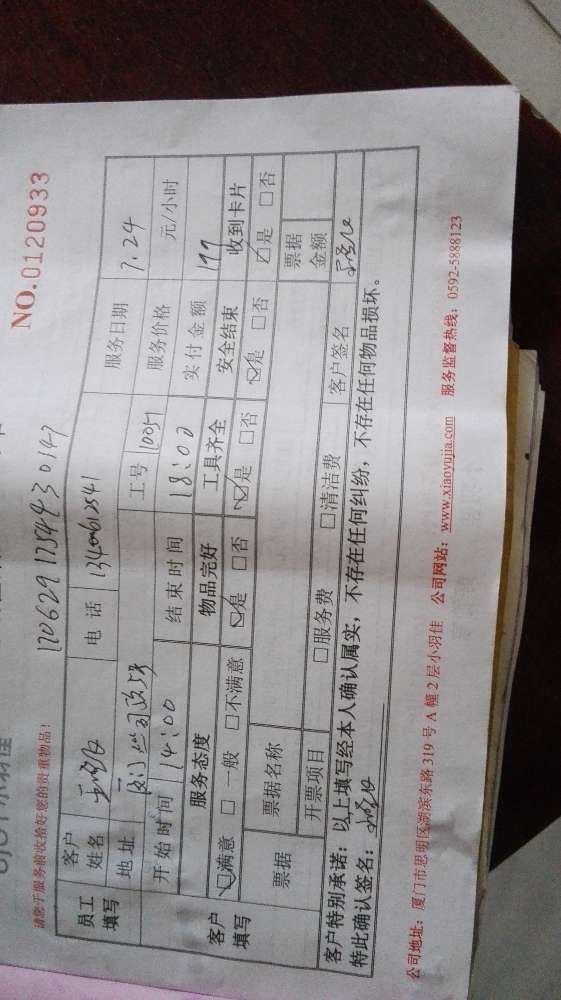 NO.0120933
请您于服务前收拾好您的贵重物品！
1706291754430147
员工填写
客户姓名 电话
地址 工号 10051 服务日期 7.24
开始时间 14:00 结束时间 18:00 服务价格 元/小时
实付金额 199
客户填写
服务态度 物品完好 工具齐全 安全结束 收到卡片
☑满意 □一般 □不满意 ☑是 □否 ☑是 □否 ☑是 □否 ☑是 □否
票据 票据名称 票据金额
开票项目 □服务费 □清洁费 客户签名
客户特别承诺：以上填写经本人确认属实，不存在任何纠纷，不存在任何物品损坏。
特此确认签名：
公司地址：厦门市思明区湖滨东路319号A幢2层小羽佳 公司网站：www.xiaoyujia.com 服务监督热线：0592-5888123